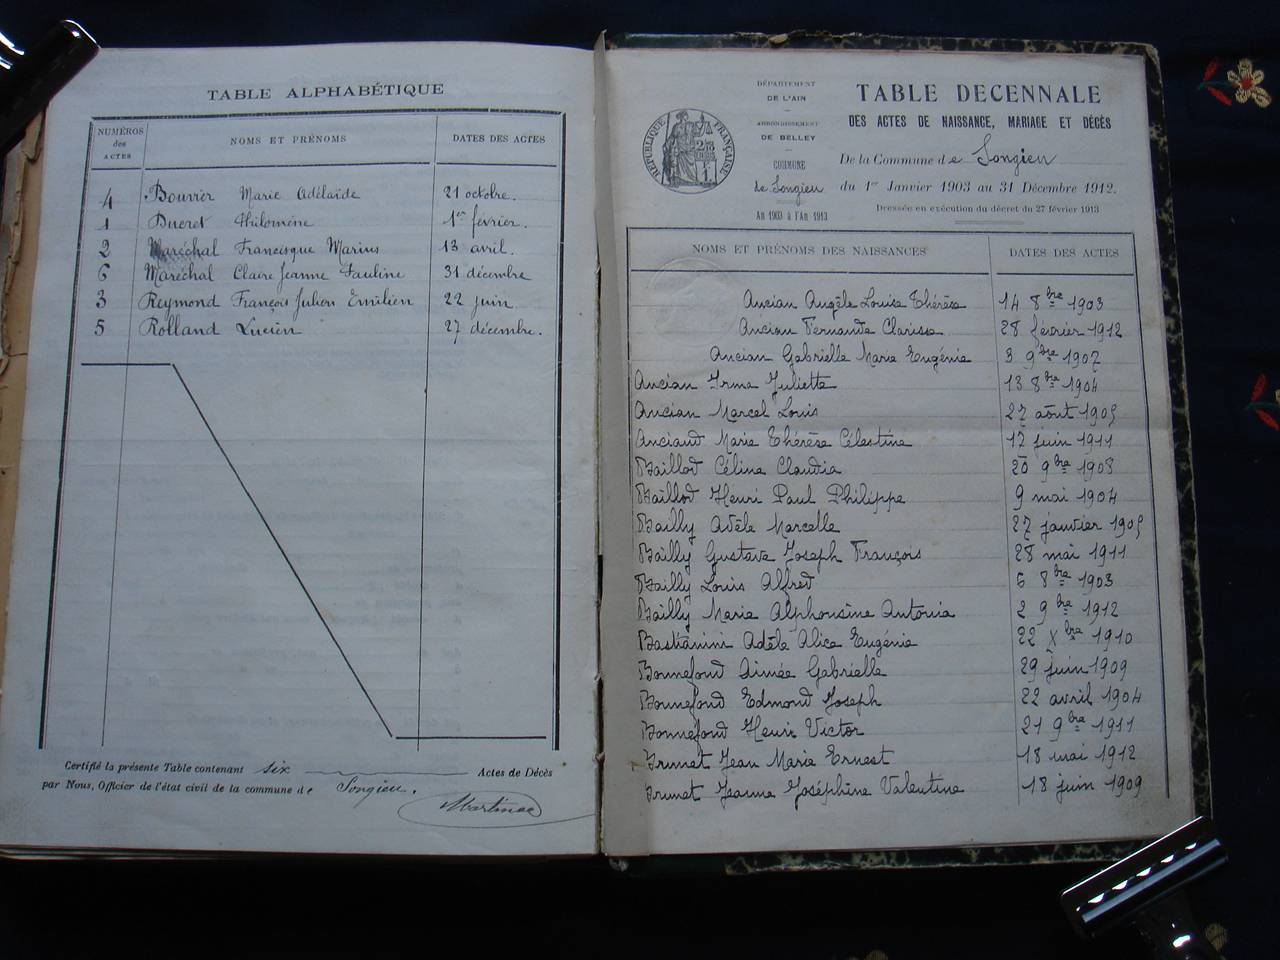 TABLE ALPHABÉTIQUE
NUMÉROS des ACTES
NOMS ET PRÉNOMS
DATES DES ACTES
4 Bouvier Marie Adélaïde 21 octobre.
1 Ducret Philomène 1er février.
2 Maréchal Francisque Marius 13 avril.
6 Maréchal Claire Jeanne Pauline 31 décembre
3 Reymond François Julien Emilien 22 juin
5 Rolland Lucien 27 décembre.
Certifié la présente Table contenant six Actes de Décès
par Nous, Officier de l'état civil de la commune de Songieu.
DÉPARTEMENT
DE L'AIN
ARRONDISSEMENT
DE BELLEY
COMMUNE
de Songieu
An 1903 à l'An 1913
RÉPUBLIQUE FRANÇAISE
TABLE DECENNALE
DES ACTES DE NAISSANCE, MARIAGE ET DÉCÈS
De la Commune de Songieu
du 1er Janvier 1903 au 31 Décembre 1912.
Dressée en exécution du décret du 27 février 1913
NOMS ET PRÉNOMS DES NAISSANCES
DATES DES ACTES
Ancian Angèle Louise Thérèse 14 8bre 1903
Ancian Fernande Clarisse 28 février 1912
Ancian Gabrielle Marie Eugénie 3 9bre 1907
Ancian Irma Juliette 13 8bre 1904
Ancian Marcel Louis 27 août 1905
Anciand Marie Thérèse Célestine 17 juin 1911
Baillod Célina Claudia 20 9bre 1908
Baillod Henri Paul Philippe 9 mai 1904
Bailly Adèle Marcelle 27 janvier 1905
Bailly Gustave Joseph François 28 mai 1911
Bailly Louis Alfred 6 8bre 1903
Bailly Marie Alphonsine Antonia 2 9bre 1912
Bastianini Adèle Alice Eugénie 22 Xbre 1910
Bonnefond Aimée Gabrielle 29 juin 1909
Bonnefond Edmond Joseph 22 avril 1904
Bonnefond Henri Victor 21 9bre 1911
Brunet Jean Marie Ernest 18 mai 1912
Brunet Jeanne Joséphine Valentine 18 juin 1909